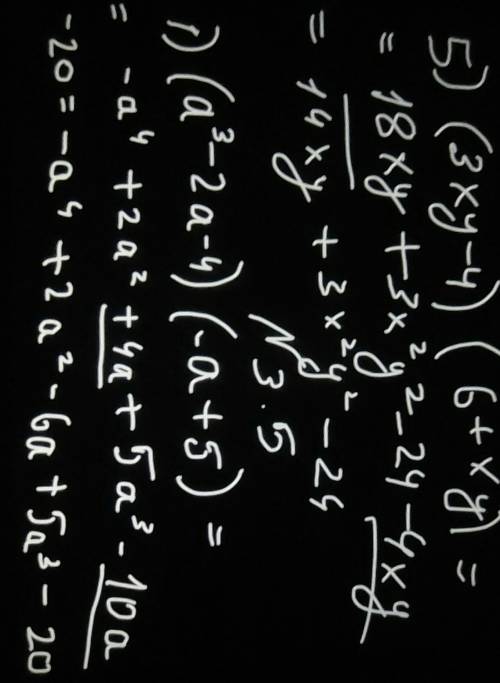 5) (3xy-4) (6+xy) =
= 18xy + 3x²y² - 24 - 4xy
= 14xy + 3x²y² - 24
№3.5
1) (a³-2a-4) (-a+5) =
= -a⁴ + 2a² + 4a + 5a³ - 10a
-20 = -a⁴ + 2a² - 6a + 5a³ - 20